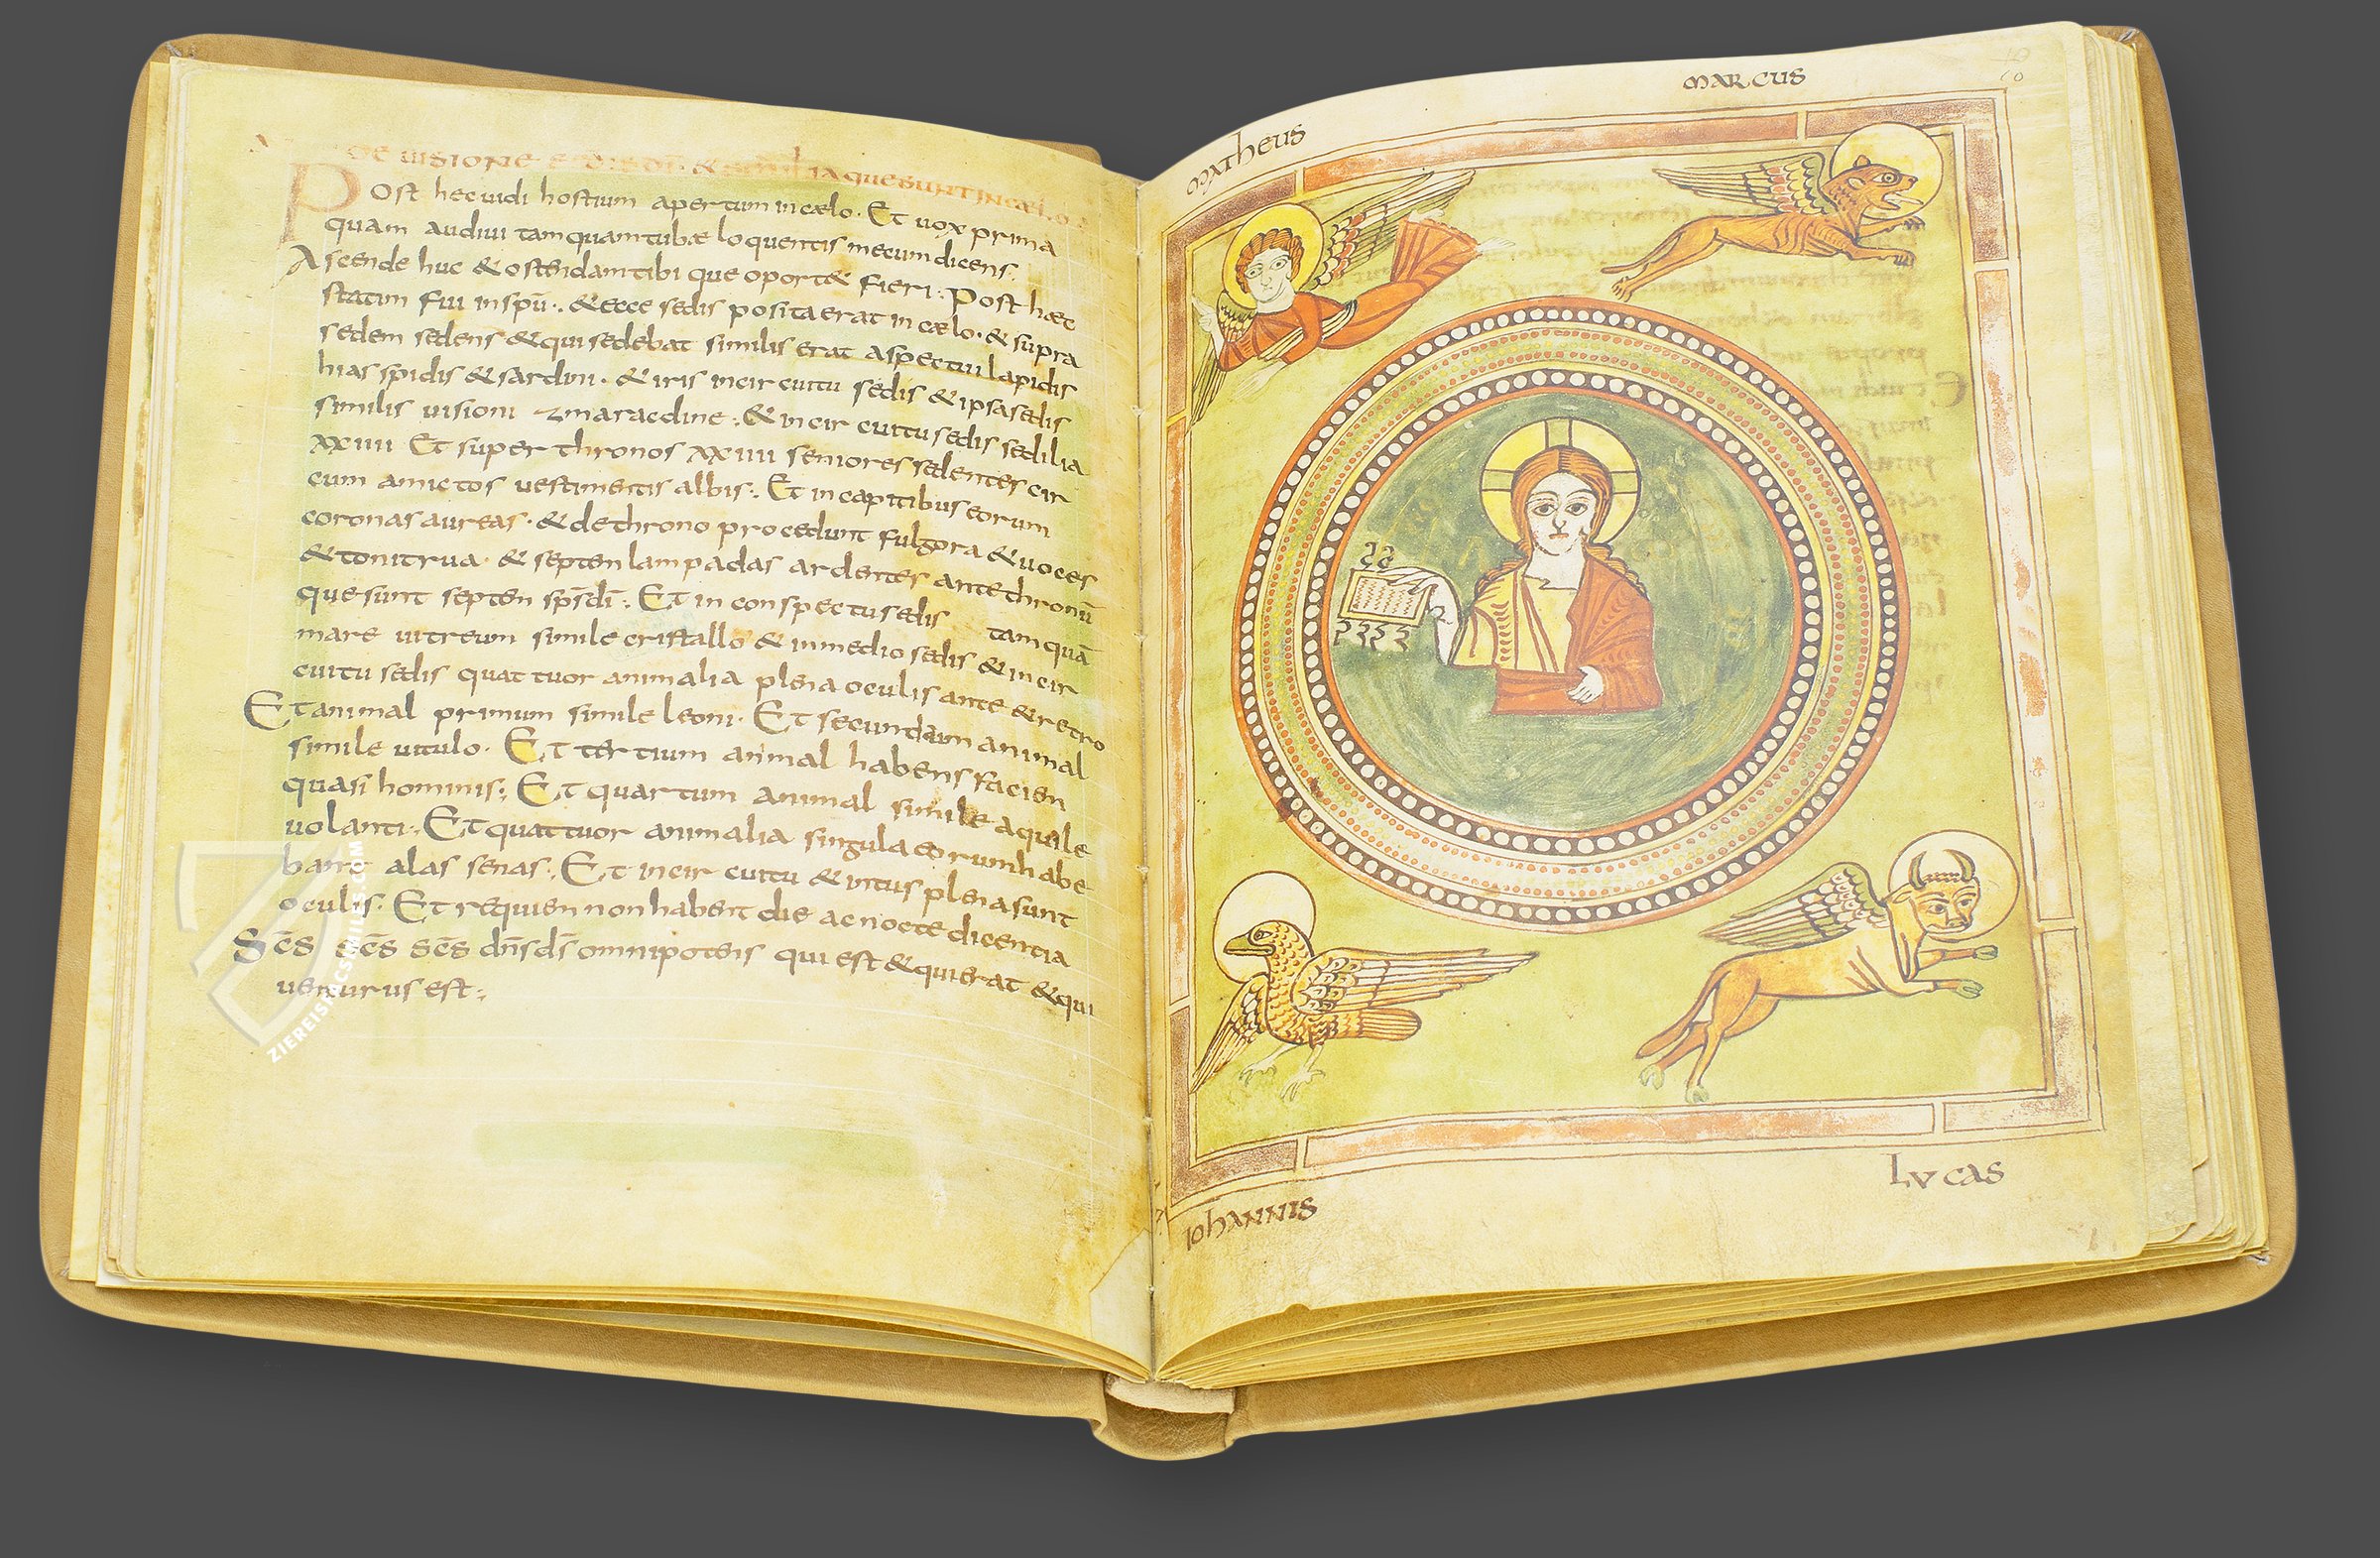 DE VISIONE SEDIS DEI & SIMILIA QUE SUNT IN CAELO
Post hec uidi hostium apertum in caelo. Et uox prima
quam audiui tamquam tubae loquentis mecum dicens:
Ascende huc & ostendam tibi que oport& fieri: Post haec
statim fui in spū: & ecce sedis posita erat in caelo. & supra
sedem sedens & qui sedebat similis erat aspectui lapidis
hiasspidis & sardini. & iris in circuitu sedis & ipsa sedis
similis uisioni zmaracdine: & in circuitu sedis sedilia
xxiiii Et super thronos xxiiii seniores sedentes cir
cum amictos uestimentis albis: Et in capitibus eorum
coronas aureas. & de throno procedunt fulgora & uoces
& tonitrua. & septem lampadas ardentes ante thronū
que sunt septem sps dī: Et in conspectu sedis tamquā
mare uitreum simile cristallo & in medio sedis & in cir
cuitu sedis quattuor animalia plena oculis ante & retro
Et animal primum simile leoni. Et secundum animal
simile uitulo. Et tertium animal habens faciem
quasi hominis: Et quartum animal simile aquile
uolanti: Et quattuor animalia singula eorum habe
bant alas senas: Et in circuitu & intus plena sunt
oculis. Et requiem non habent die ac nocte dicentia
Scs scs scs dns ds omnipotens qui est & qui erat & qui
uenturus est:
ZIEREIS FACSIMILES.COM
MATHEUS
MARCUS
10
IOHANNIS
LVCAS